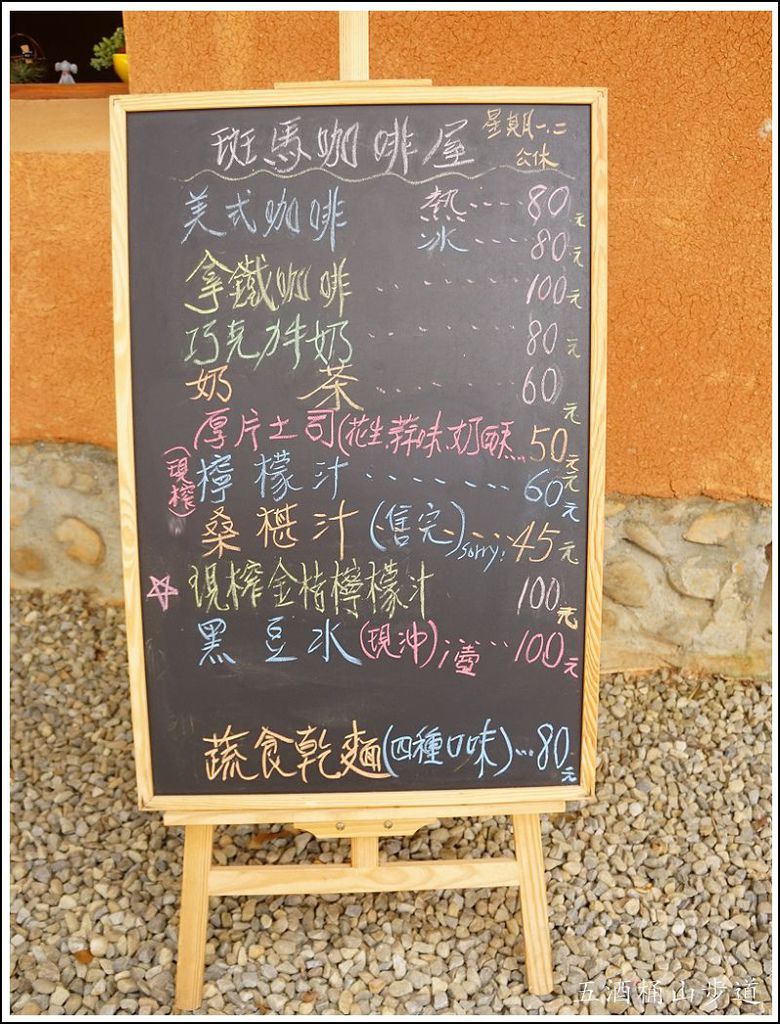 斑馬咖啡屋 星期一.二
公休
美式咖啡 熱....80元
冰....80元
拿鐵咖啡......100元
巧克力牛奶......80元
奶 茶......60元
厚片土司(花生.蒜味.奶酥...50元
(現榨)檸檬汁........60元
桑椹汁(售完)sorry!....45元
☆現榨金桔檸檬汁 100元
黑豆水(現沖)1壺......100元
蔬食乾麵(四種口味)...80元
五酒桶山步道